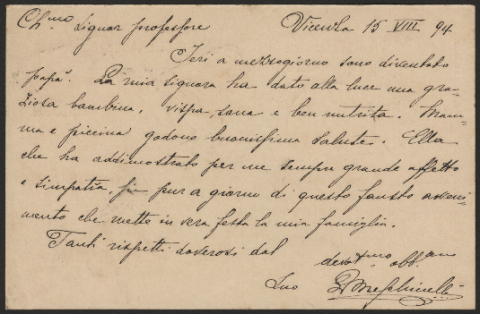 Ch.mo Signor professore Vicenza 15 VIII 94
Ieri a mezzogiorno sono diventato
papà. La mia signora ha dato alla luce una gra-
ziosa bambina, vispa, sana e ben nutrita. Mam-
ma e piccina godono buonissima salute. Ella
che ha addimostrato per me sempre grande affetto
e simpatia, sia pur a giorno di questo fausto avveni-
mento che mette in vera festa la mia famiglia.
Tanti rispetti doverosi dal
devot.mo obbl.mo
Suo